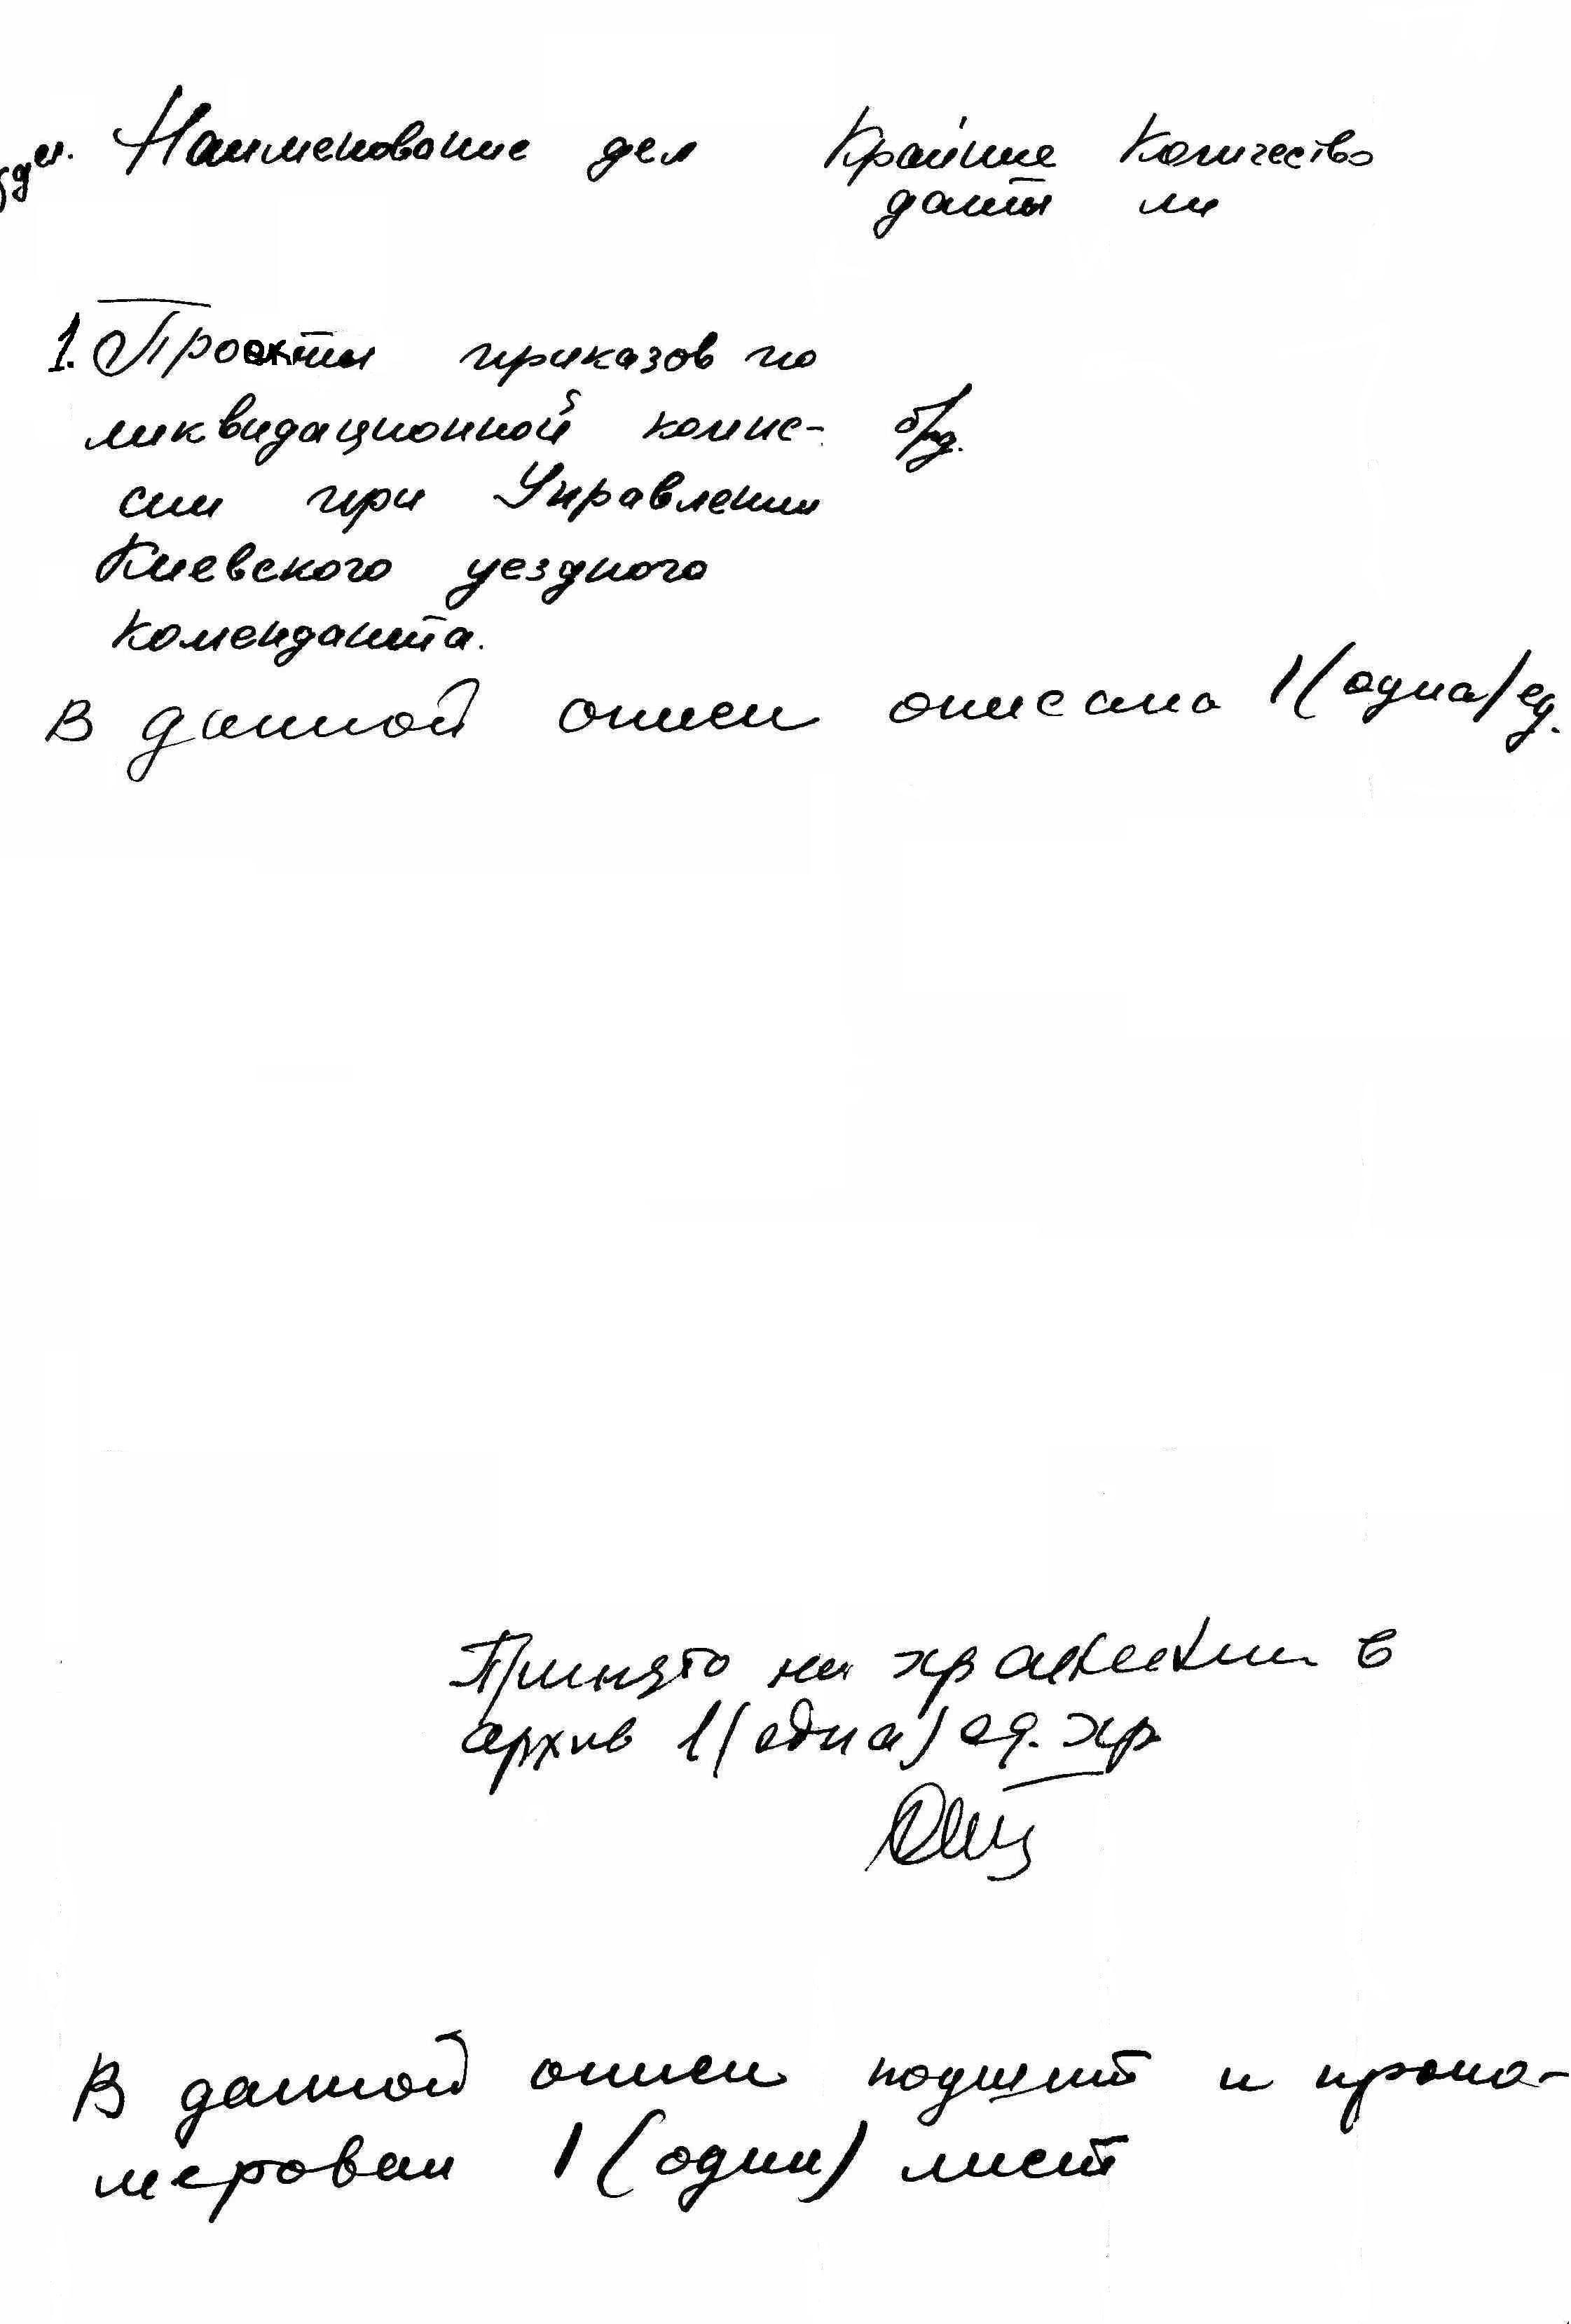 Наименование дел Крайние Количество
даты ли
1. Проекты приказов по
ликвидационной комис- б/д.
сии при Управлении
Киевского уездного
коменданта.
В данной описи описана 1 (одна) ед.
Принято на хранение в
архив 1 (одна) ед. хр
В данной описи подшит и прону-
мерован 1 (один) лист